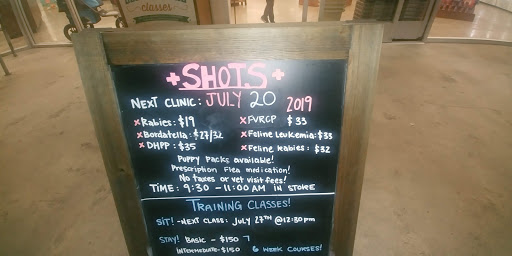 classes
+ SHOTS +
NEXT CLINIC: JULY 20 2019
x Rabies: $19 x FVRCP $33
x Bordatella: $27/32 x Feline Leukemia: $33
x DHPP: $35 x Feline Rabies: $32
Puppy Packs available!
Prescription Flea medication!
No taxes or vet visit fees!
TIME: 9:30 - 11:00 AM IN STORE
TRAINING CLASSES!
SIT! - NEXT CLASS: JULY 27TH @ 12:30pm
STAY! BASIC - $150
INTERMEDIATE - $150 6 WEEK COURSES!